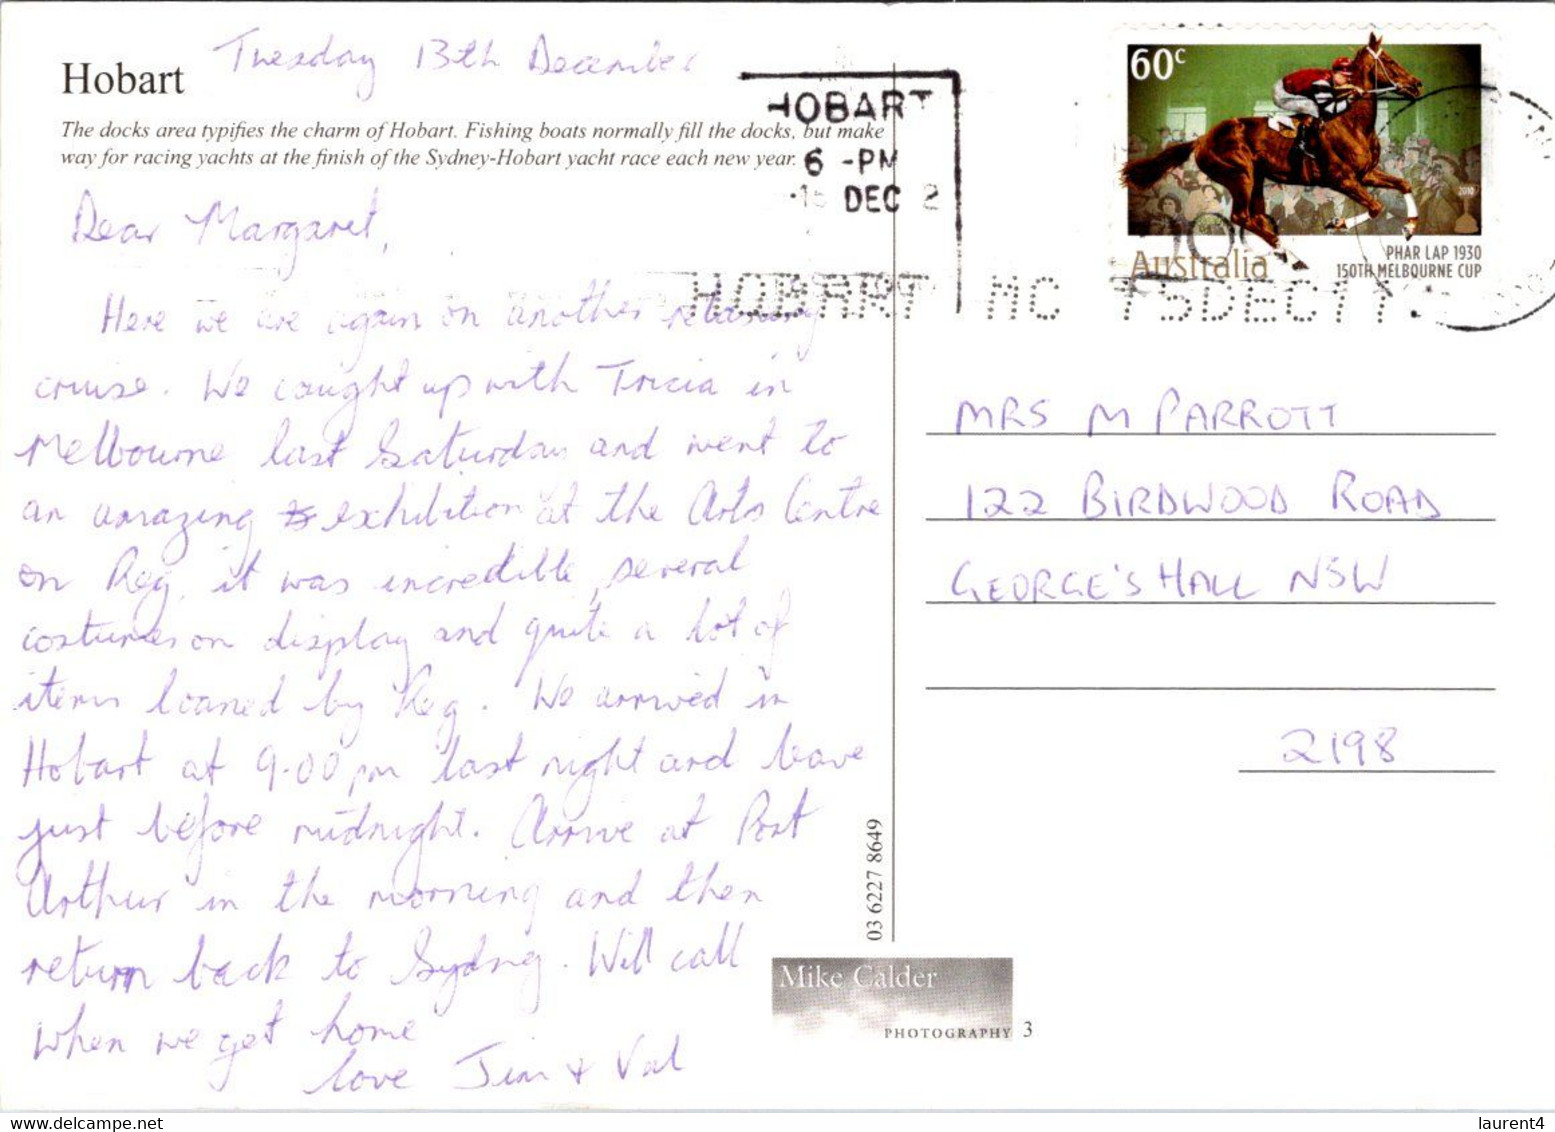 Hobart
Tuesday 13th December
The docks area typifies the charm of Hobart. Fishing boats normally fill the docks, but make
way for racing yachts at the finish of the Sydney-Hobart yacht race each new year.
Dear Margaret,
Here we are again on another relaxing
cruise. We caught up with Tricia in
Melbourne last Saturday and went to
an amazing exhibition at the Arts Centre
on Reg, it was incredible, several
costumes on display and quite a lot of
items loaned by Reg. We arrived in
Hobart at 9.00pm last night and leave
just before midnight. Arrive at Port
Arthur in the morning and then
return back to Sydney. Will call
when we get home
love Jim & Val
HOBART
6 -PM
DEC 2
HOBART MC 15DEC11
60c
2010
Australia
PHAR LAP 1930
150TH MELBOURNE CUP
MRS M PARROTT
122 BIRDWOOD ROAD
GEORGE'S HALL NSW
2198
03 6227 8649
Mike Calder
PHOTOGRAPHY 3
www.delcampe.net
laurent4